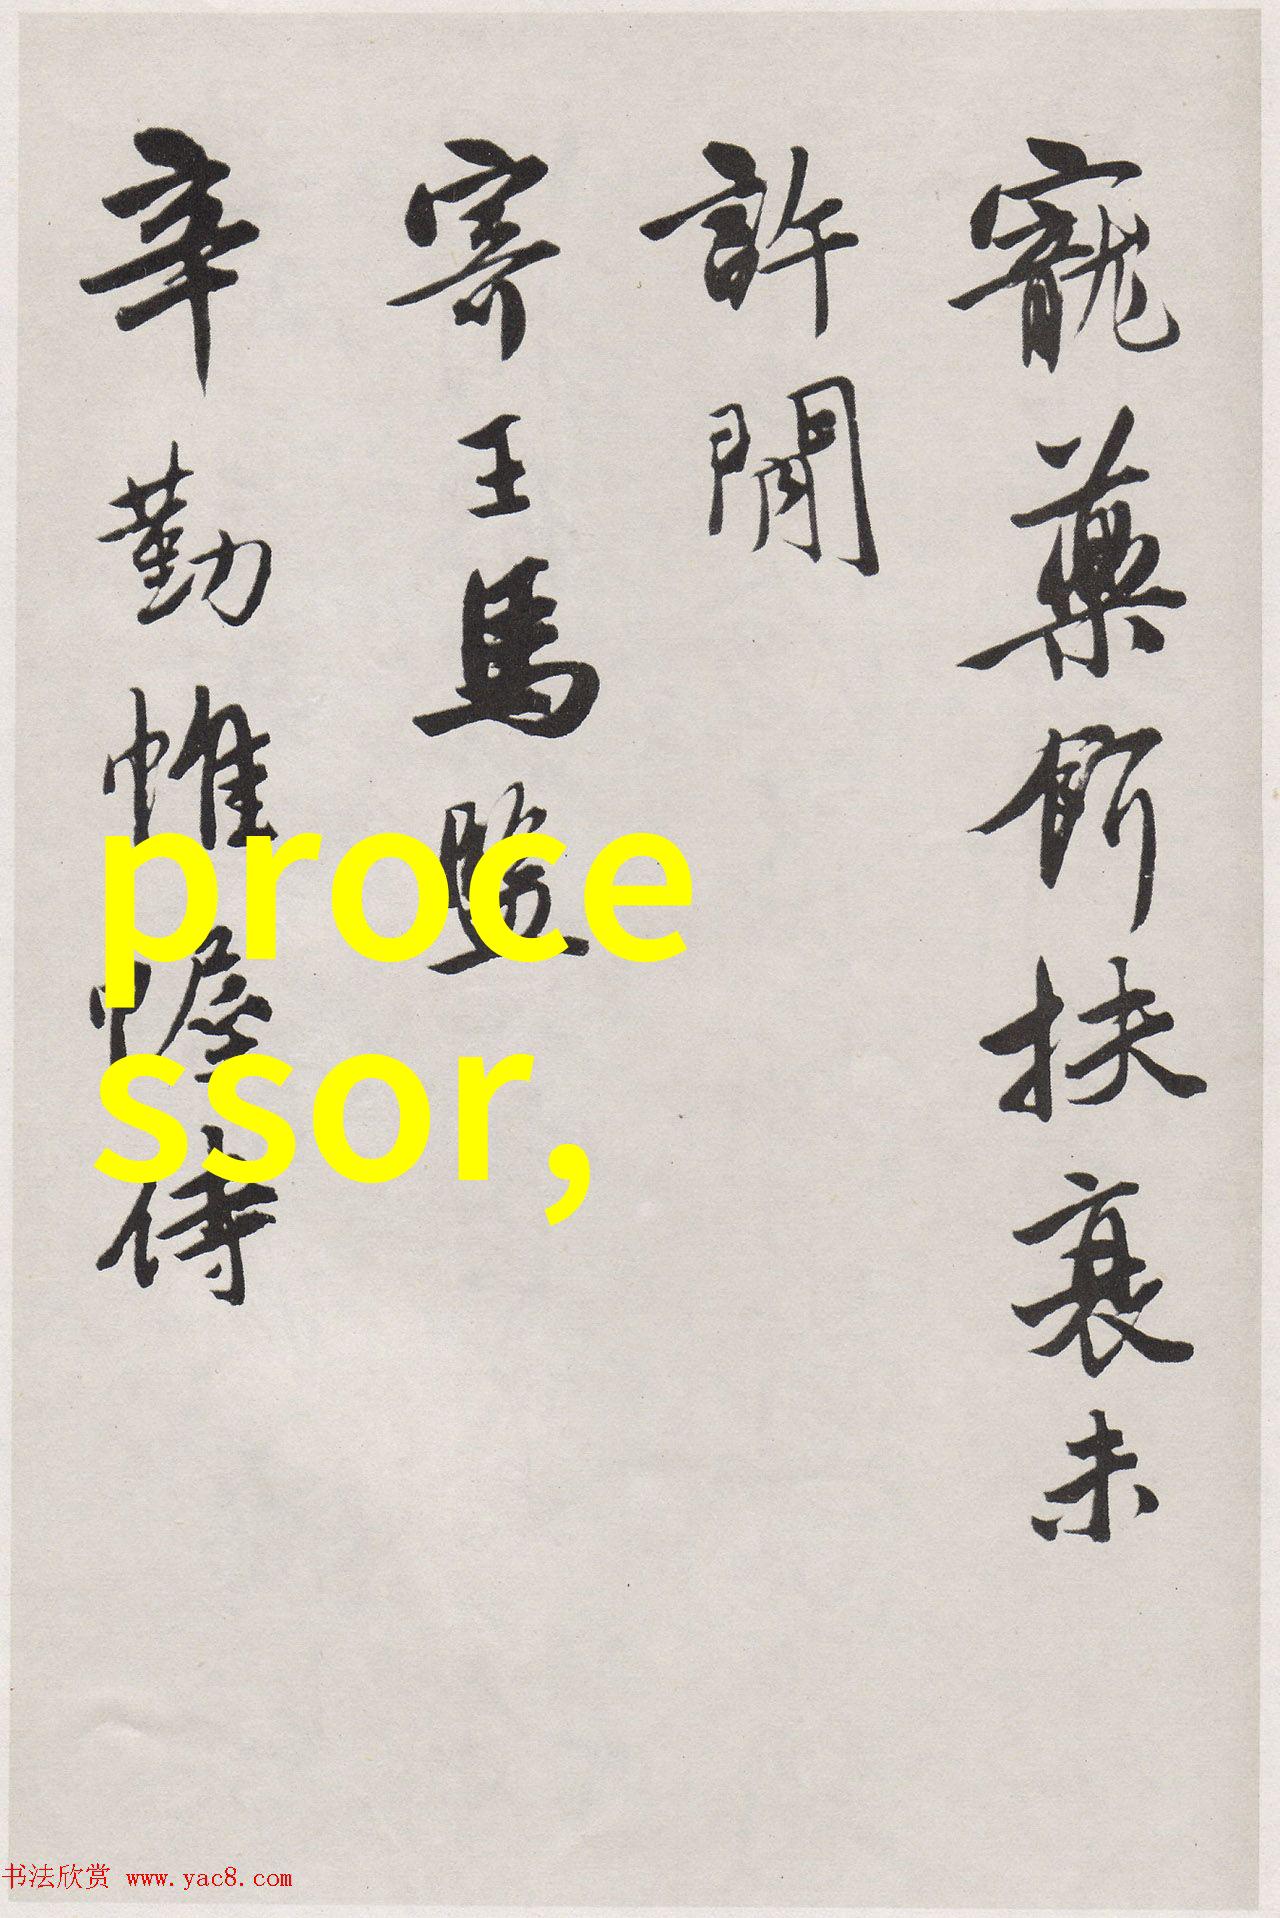 寵藥餌扶衰未
許閒
寄王馬監
辛勤帷幄侍
proce
ssor,
书法欣赏 www.yac8.com